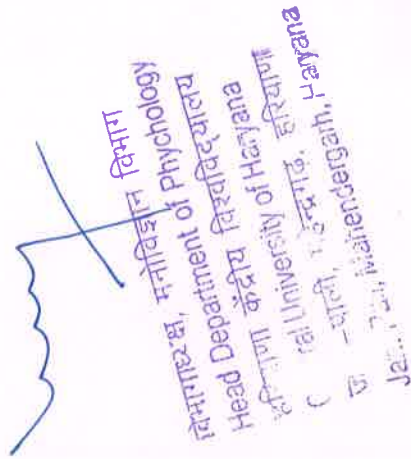 विभागाध्यक्ष, मनोविज्ञान विभाग
Head Department of Phychology
हरियाणा केंद्रीय विश्वविद्यालय
ral University of Haryana
हरियाणा
Mahendergarh, Haryana